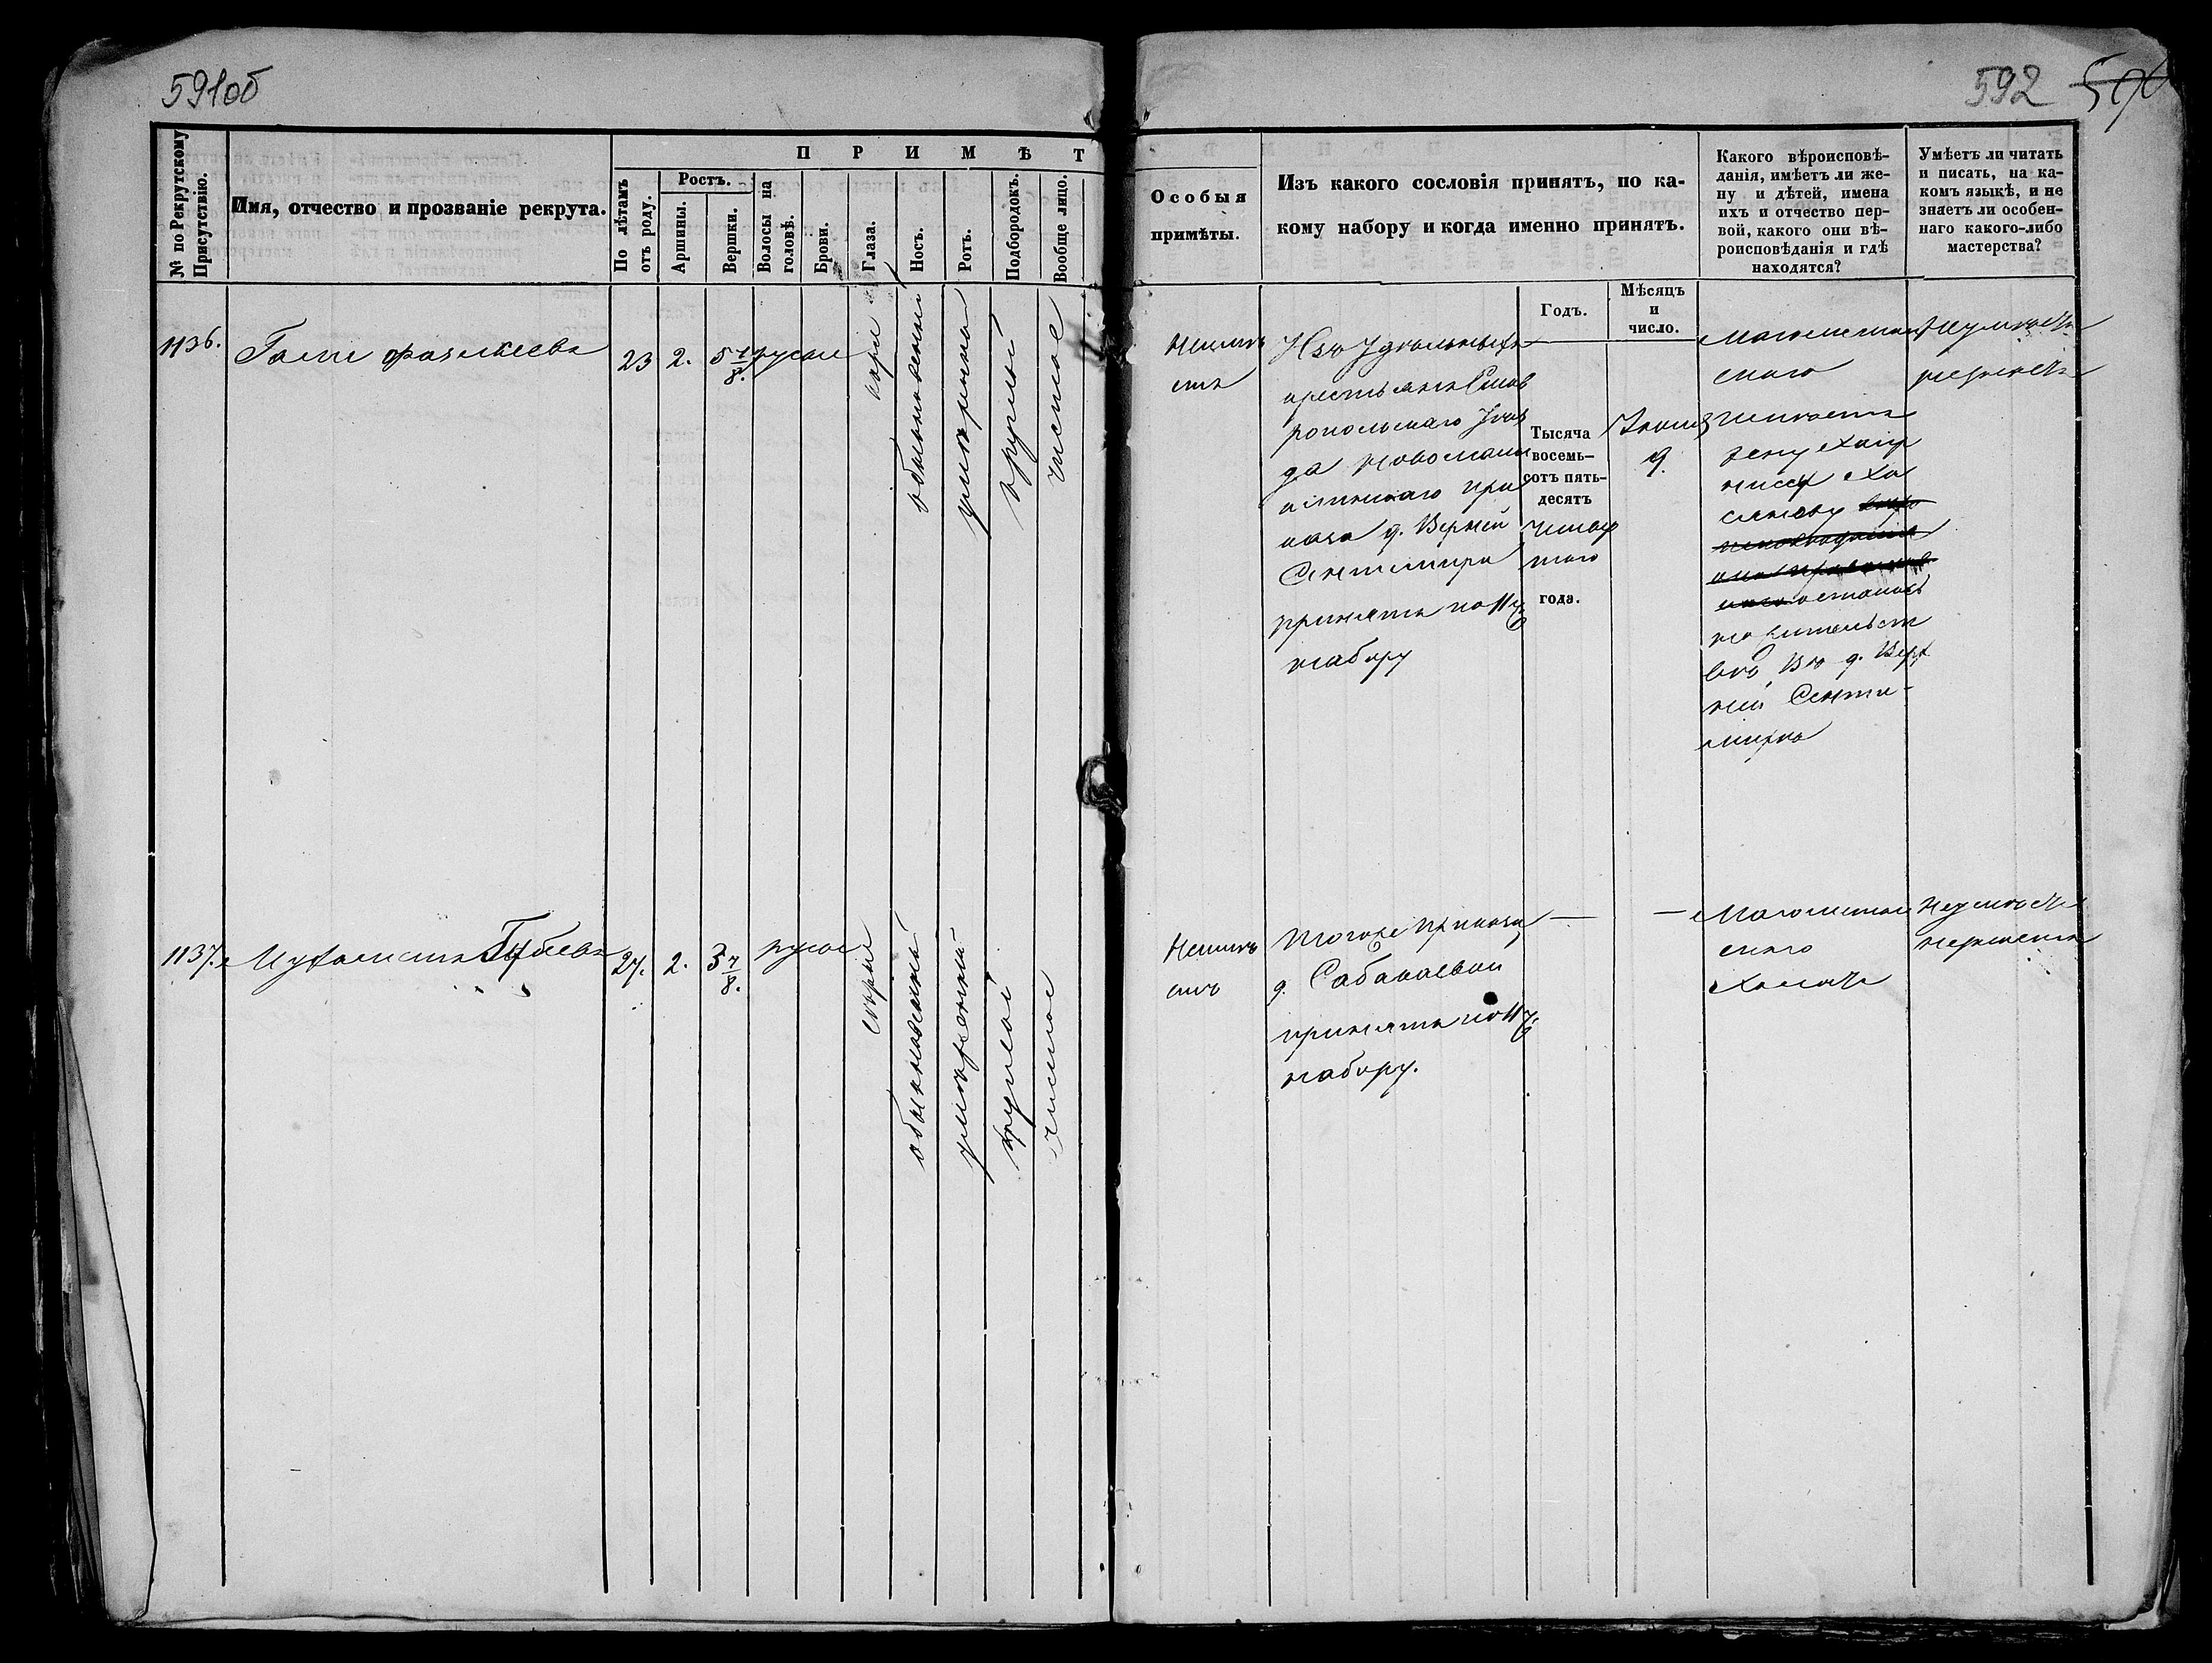 591об
592 590
№ по Рекрутскому Присутствію.
Имя, отчество и прозваніе рекрута.
ПРИМѢТ
По лѣтамъ отъ роду.
Ростъ.
Аршины.
Вершки.
Волосы на головѣ.
Брови.
Глаза.
Носъ.
Ротъ.
Подбородокъ.
Вообще лицо.
Особыя
примѣты.
Изъ какого сословія принятъ, по ка-
кому набору и когда именно принятъ.
Годъ.
Мѣсяцъ
и
число.
Какого вѣроисповѣ-
данія, имѣетъ ли же-
ну и дѣтей, имена
ихъ и отчество пер-
вой, какого они вѣ-
роисповѣданія и гдѣ
находятся?
Умѣетъ ли читать
и писать, на ка-
комъ языкѣ, и не
знаетъ ли особен-
наго какого-либо
мастерства?
1136.
23
2.
5 7/8.
русые
кари
обыкновенный
умѣренный
круглый
чистое
Неимѣ
етъ
Изъ Удѣльныхъ
крестьянъ Став
ропольскаго Уѣз
да Новомали
клинскаго при
каза д. Верхней
принятъ по 11му
набору
Тысяча
восемь-
сотъ пять-
десятъ
четвер
таго
года.
9.
Магометан
скаго
имѣетъ
жену
осталась
на жительст
вѣ, въ д. Верх
ней Сенти-
мирѣ
Неумѣетъ
незнаетъ
1137.
27.
2.
3 7/8.
русые
сѣрые
обыкновенный
умѣренный
круглый
чистое
Неимѣ
етъ
Тогоже приказа
д. Сабакаевой
принятъ по 11му
набору.
—
—
Магометан
скаго
Холостъ
Неумѣетъ
незнаетъ